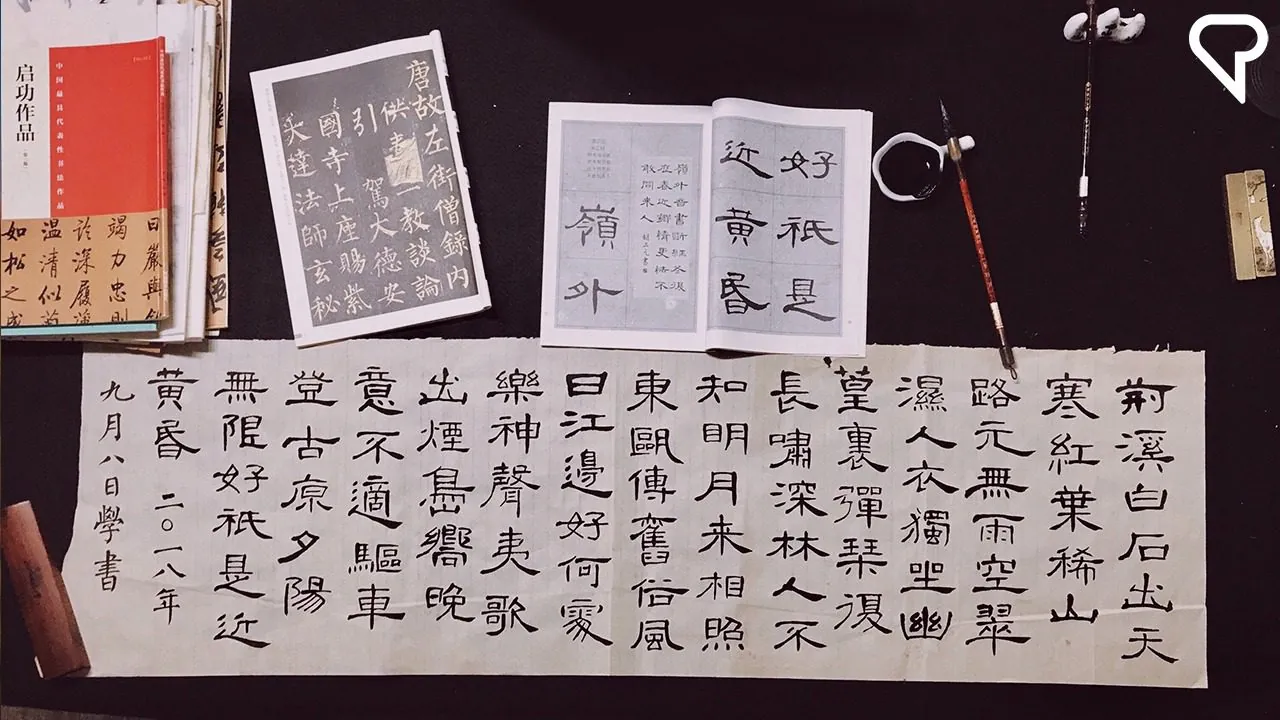 启功作品
中国最具代表性书法作品
曰嚴與
竭力忠則
臨深履
温清似
如松之
唐故左街僧録内
供奉三教談論
引駕大德安
國寺上座賜紫
大達法師玄秘
好祇是
近黃昏
嶺外音書斷經冬復
歷春近鄉情更怯不
敢問来人
嶺外
荊溪白石出天
寒紅葉稀山
路元無雨空翠
濕人衣獨坐幽
篁裏彈琴復
長嘯深林人不
知明月来相照
東甌傳舊俗風
日江邊好何處
樂神聲夷歌
出煙島嚮晚
意不適驅車
登古原夕陽
無限好祇是近
黃昏 二〇一八年
九月八日學書